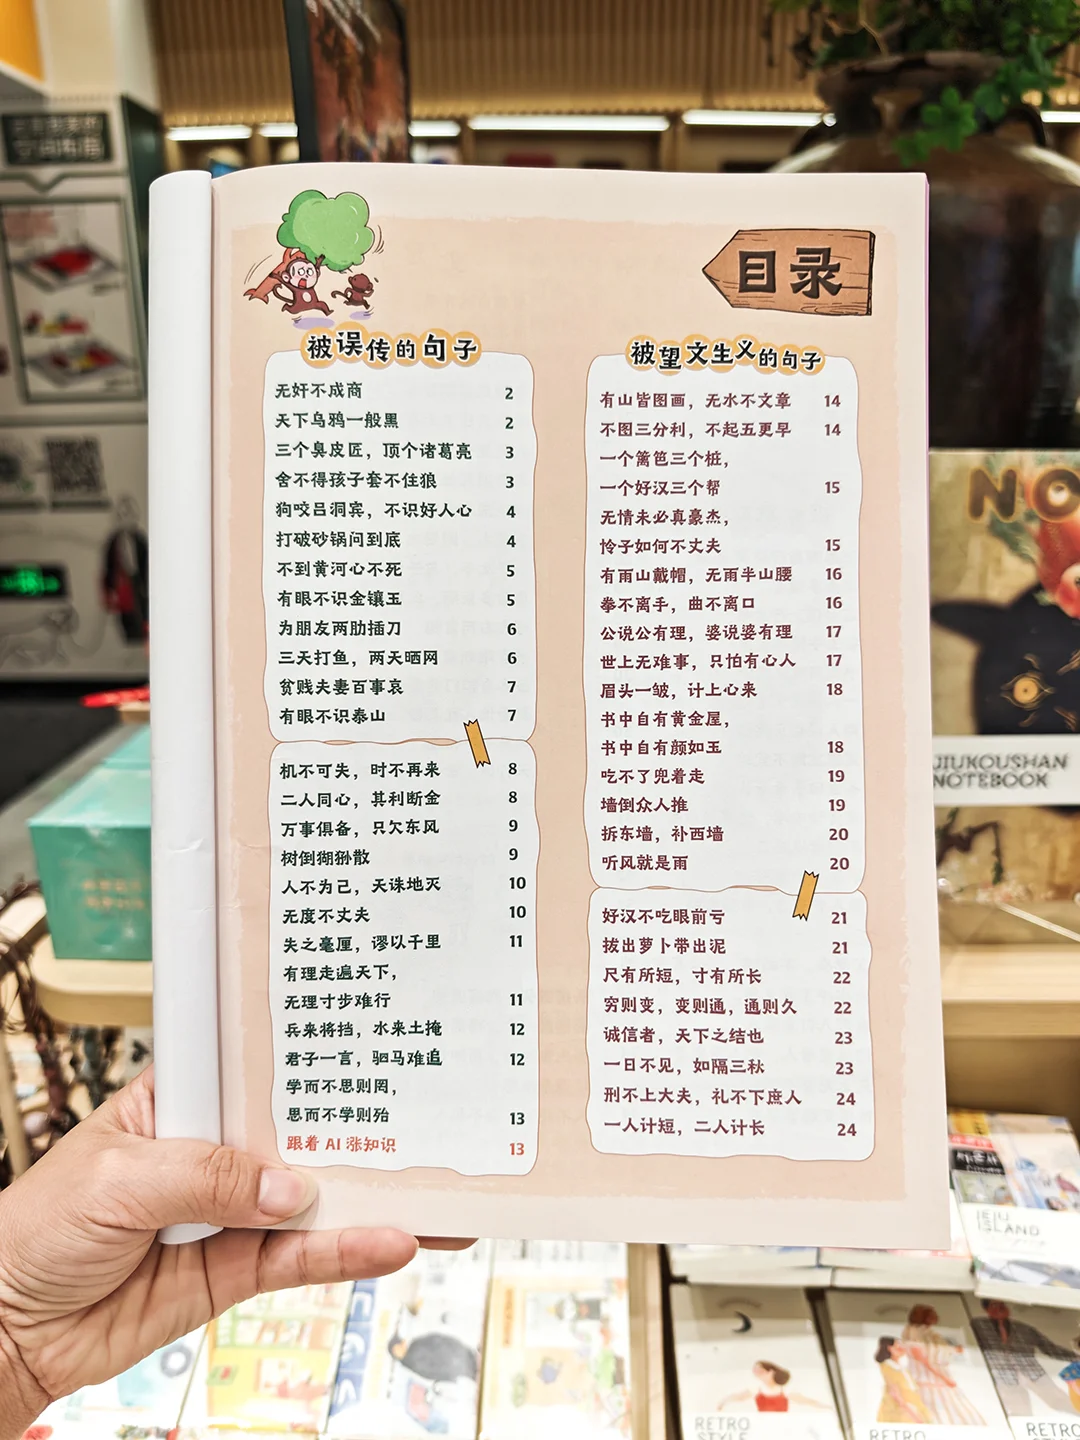 目录
被误传的句子
无奸不成商 2
天下乌鸦一般黑 2
三个臭皮匠，顶个诸葛亮 3
舍不得孩子套不住狼 3
狗咬吕洞宾，不识好人心 4
打破砂锅问到底 4
不到黄河心不死 5
有眼不识金镶玉 5
为朋友两肋插刀 6
三天打鱼，两天晒网 6
贫贱夫妻百事哀 7
有眼不识泰山 7
机不可失，时不再来 8
二人同心，其利断金 8
万事俱备，只欠东风 9
树倒猢狲散 9
人不为己，天诛地灭 10
无度不丈夫 10
失之毫厘，谬以千里 11
有理走遍天下，
无理寸步难行 11
兵来将挡，水来土掩 12
君子一言，驷马难追 12
学而不思则罔，
思而不学则殆 13
跟着 AI 涨知识 13
被望文生义的句子
有山皆图画，无水不文章 14
不图三分利，不起五更早 14
一个篱笆三个桩，
一个好汉三个帮 15
无情未必真豪杰，
怜子如何不丈夫 15
有雨山戴帽，无雨半山腰 16
拳不离手，曲不离口 16
公说公有理，婆说婆有理 17
世上无难事，只怕有心人 17
眉头一皱，计上心来 18
书中自有黄金屋，
书中自有颜如玉 18
吃不了兜着走 19
墙倒众人推 19
拆东墙，补西墙 20
听风就是雨 20
好汉不吃眼前亏 21
拔出萝卜带出泥 21
尺有所短，寸有所长 22
穷则变，变则通，通则久 22
诚信者，天下之结也 23
一日不见，如隔三秋 23
刑不上大夫，礼不下庶人 24
一人计短，二人计长 24
NO
JIUKOUSHAN
NOTEBOOK
JEJU
ISLAND
RETRO
STYLE
RETRO
RETRO